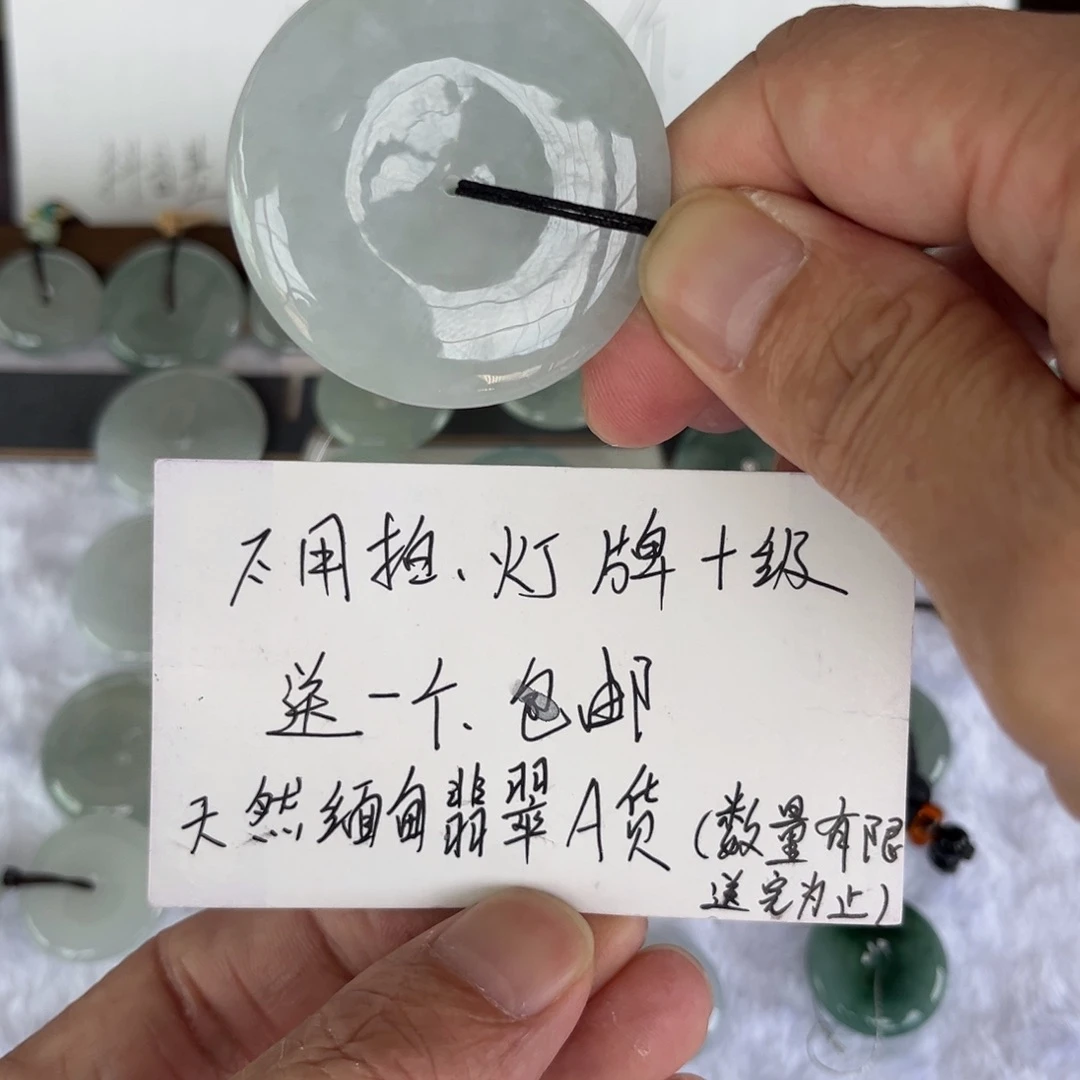 不用拍、灯牌十级
送一个、包邮
天然缅甸翡翠A货(数量有限
送完为止)